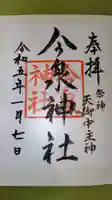 奉拝
祭神
天御中主神
今泉神社
令和五年一月七日